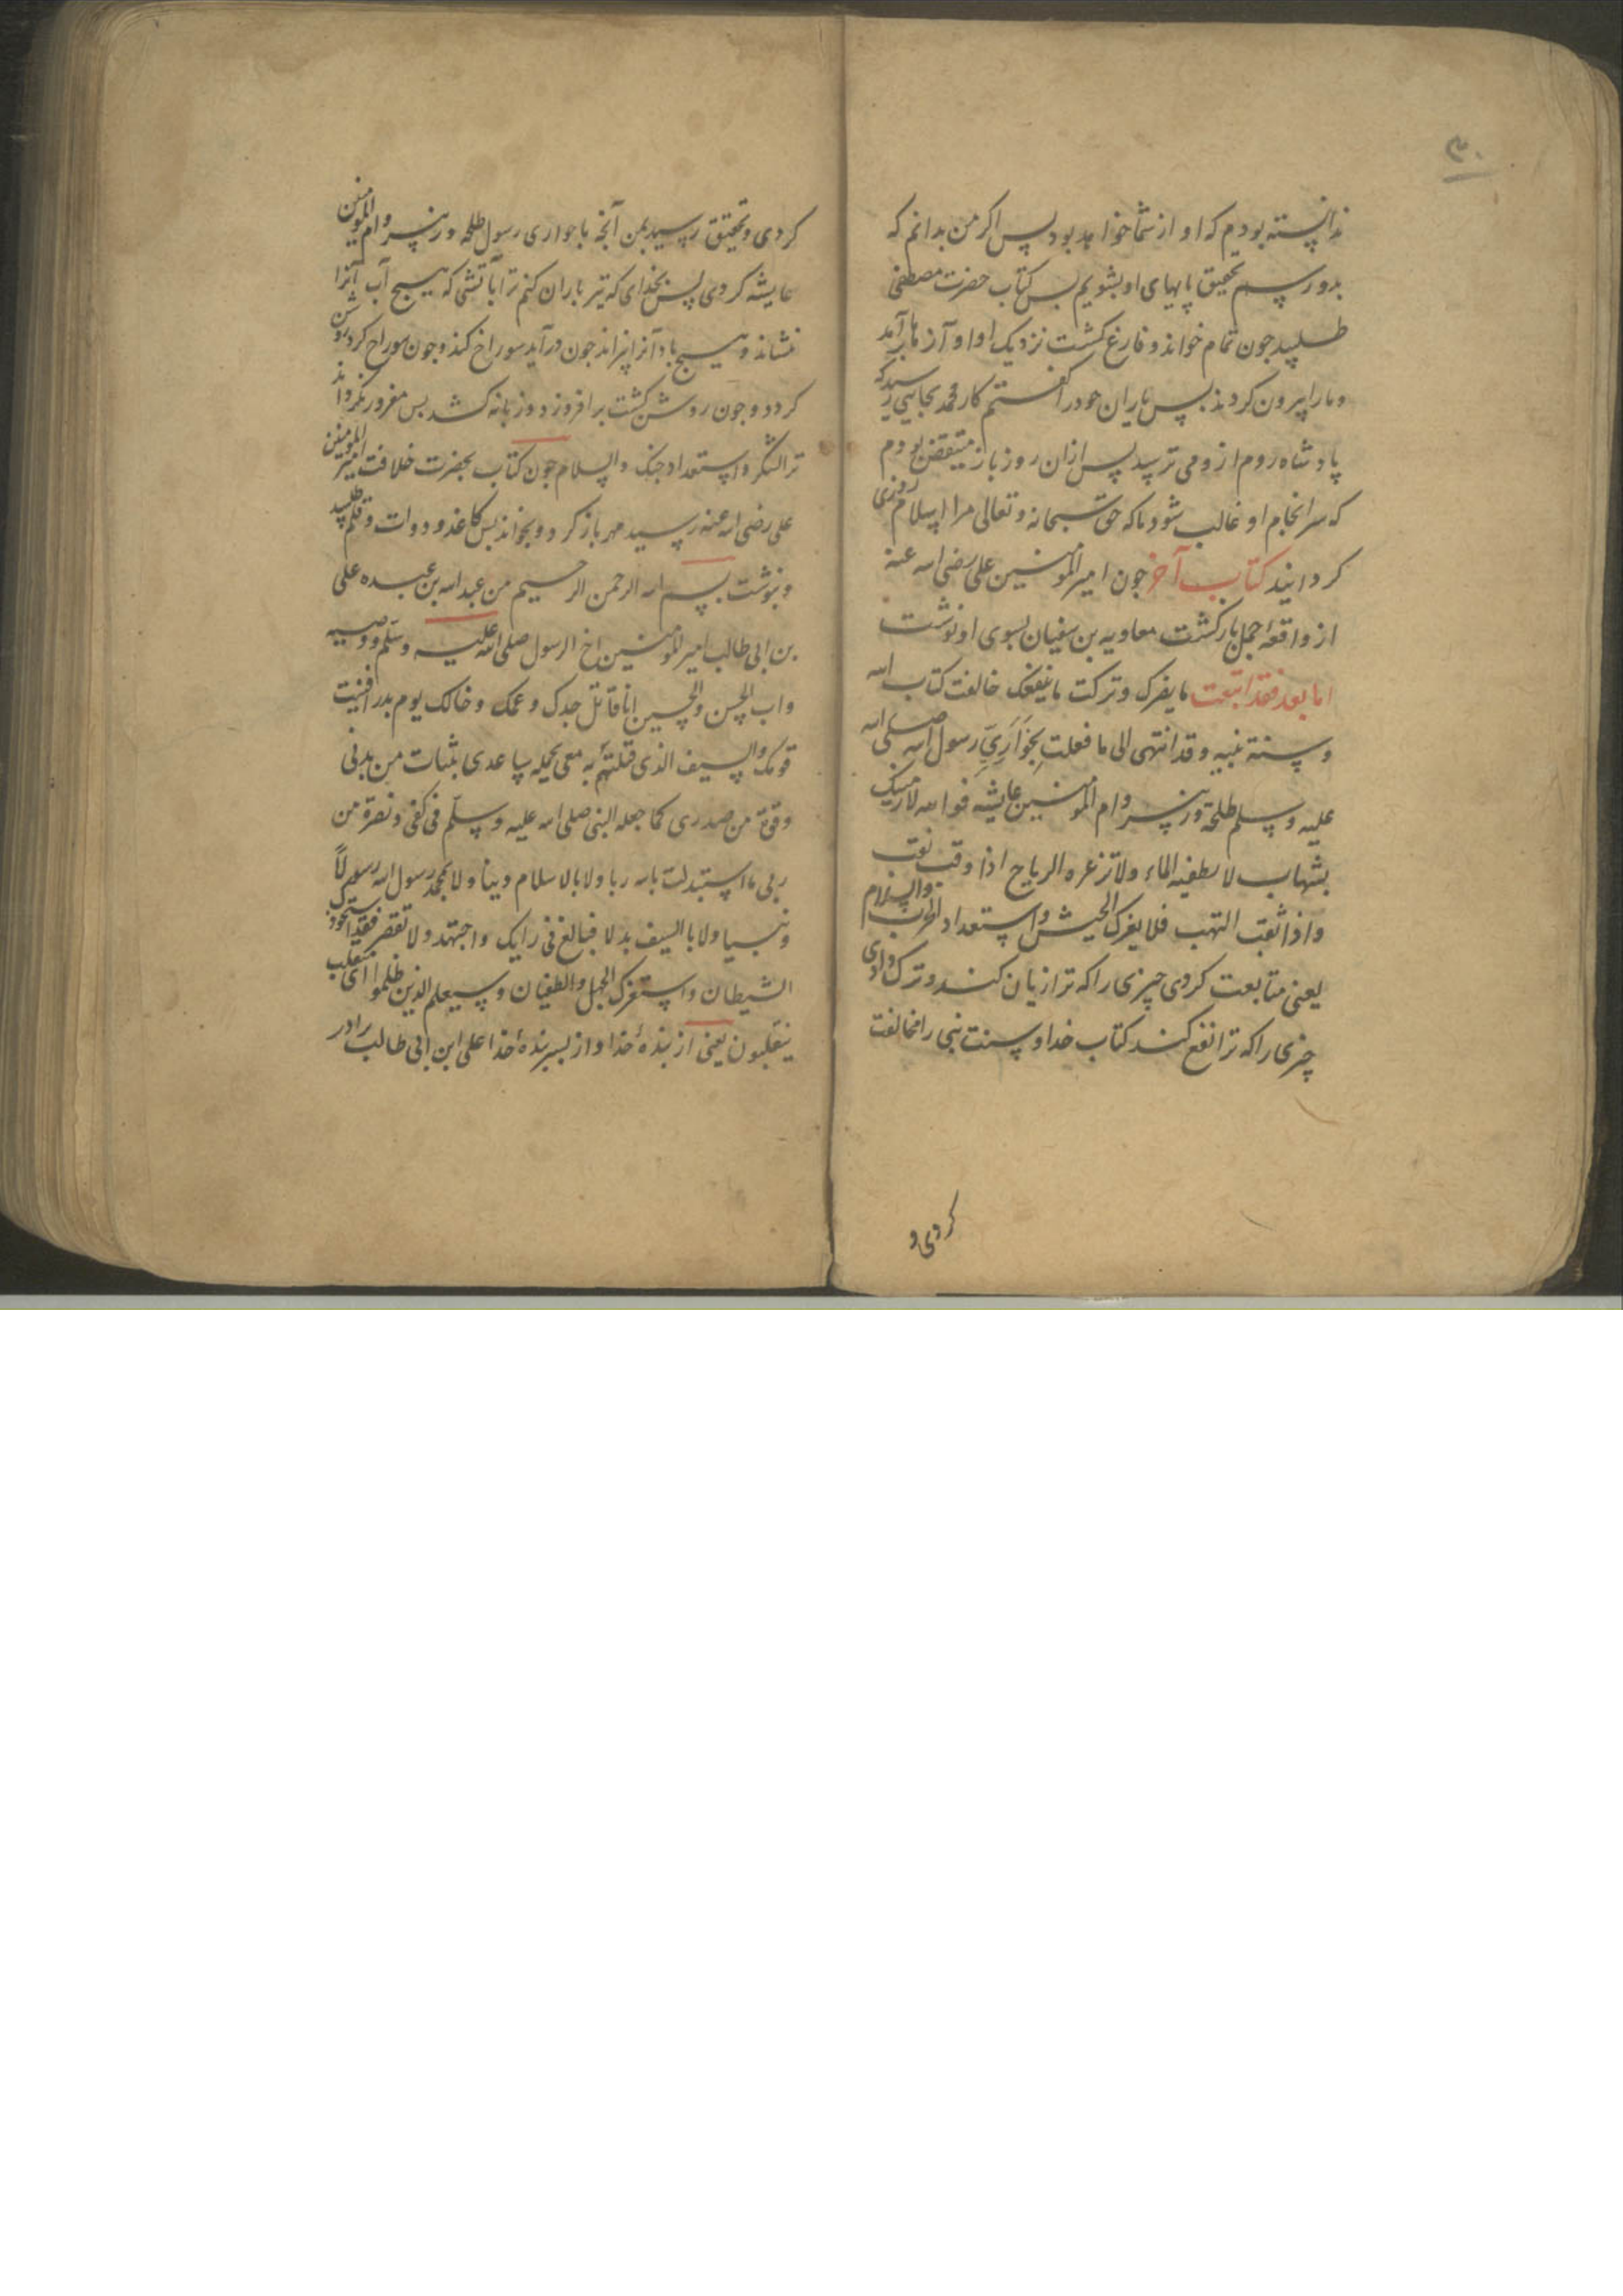 ۳۰
ندانسته بودم که او از شما خواهد بود پس اکر من بدانم که
بدو رسم تحقیق پایهای او بشویم بس کتاب حضرت مصطفی
طلبید جون تمام خواند و فارغ کشت نزدیک او آوازها برآمد
و مارا بیرون کردند پس یاران خود را کفتم کار محمد بجایی رسید که
پادشاه روم از وی ترسید پس ازان روز باز متیقن بودم
که سرانجام او غالب شود تا که حق سبحانه و تعالی مرا اسلام روزی
کردانید کتاب آخر جون امیر المومنین علی رضی الله عنه
از واقعهٔ جمل باز کشت معاویه بن سفیان بسوی او نوشت
اما بعد فقد اتبعت ما یضرک و ترکت ما ینفعک خالفت کتاب الله
و سنة نبیه و قد انتهی الی ما فعلت بحواری رسول الله صلی الله
علیه و سلم طلحة و زبیر و ام المومنین عایشه فوالله لارمینک
بشهاب لا یطفیه الماء ولا تزعزه الریاح اذا وقع نقب
و اذا ثقب التهب فلا یغرک الجیش و استعداد الحرب والسلام
یعنی متابعت کردی چیزی را که ترا زیان کند و ترک دادی
چیزی را که ترا نفع کند کتاب خدا و سنت نبی را مخالفت
کردی و
کردی و تحقیق رسید بمن آنچه با حواری رسول طلحه و زبیر و ام المومنین
عایشه کردی پس بخدای که تیر باران کنم ترا بآتشی که هیچ آب آنرا
ننشاند و هیچ باد آنرا نپراند جون درآید سوراخ کند و جون سوراخ کرد روشن
کردد و جون روشن کشت برافروزد و زبانه کشد بس مغرور نکرداند
ترا لشکر و استعداد جنک والسلام جون کتاب بحضرت خلافت امیر المومنین
علی رضی الله عنه رسید مهر باز کرد و بخواند بس کاغذ و دوات و قلم طلبید
و بنوشت بسم الله الرحمن الرحیم من عبد الله بن عبده علی
بن ابی طالب امیر المومنین اخ الرسول صلی الله علیه و سلم و وصیه
و اب الحسن والحسین انا قاتل جدک و عمک و خالک یوم بدر افنیت
قومک والسیف الذی قتلتهم به معی یحمله ساعدی بثبات من بدنی
و قوة من صدری کما جعله النبی صلی الله علیه و سلم فی کفی و نصرة من
ربی ما استبدلت بالله ربا ولا بالاسلام دینا ولا بمحمد رسول الله رسولاً
و نبیا ولا بالسیف بدلا فبالغ فی رایک و اجتهد ولا تقصر فقد استحوذ
الشیطان و استفزک الجهل والطغیان و سیعلم الذین ظلموا ای منقلب
ینقلبون یعنی از بندهٔ خدا و از بسر بندهٔ خدا علی ابن ابی طالب برادر